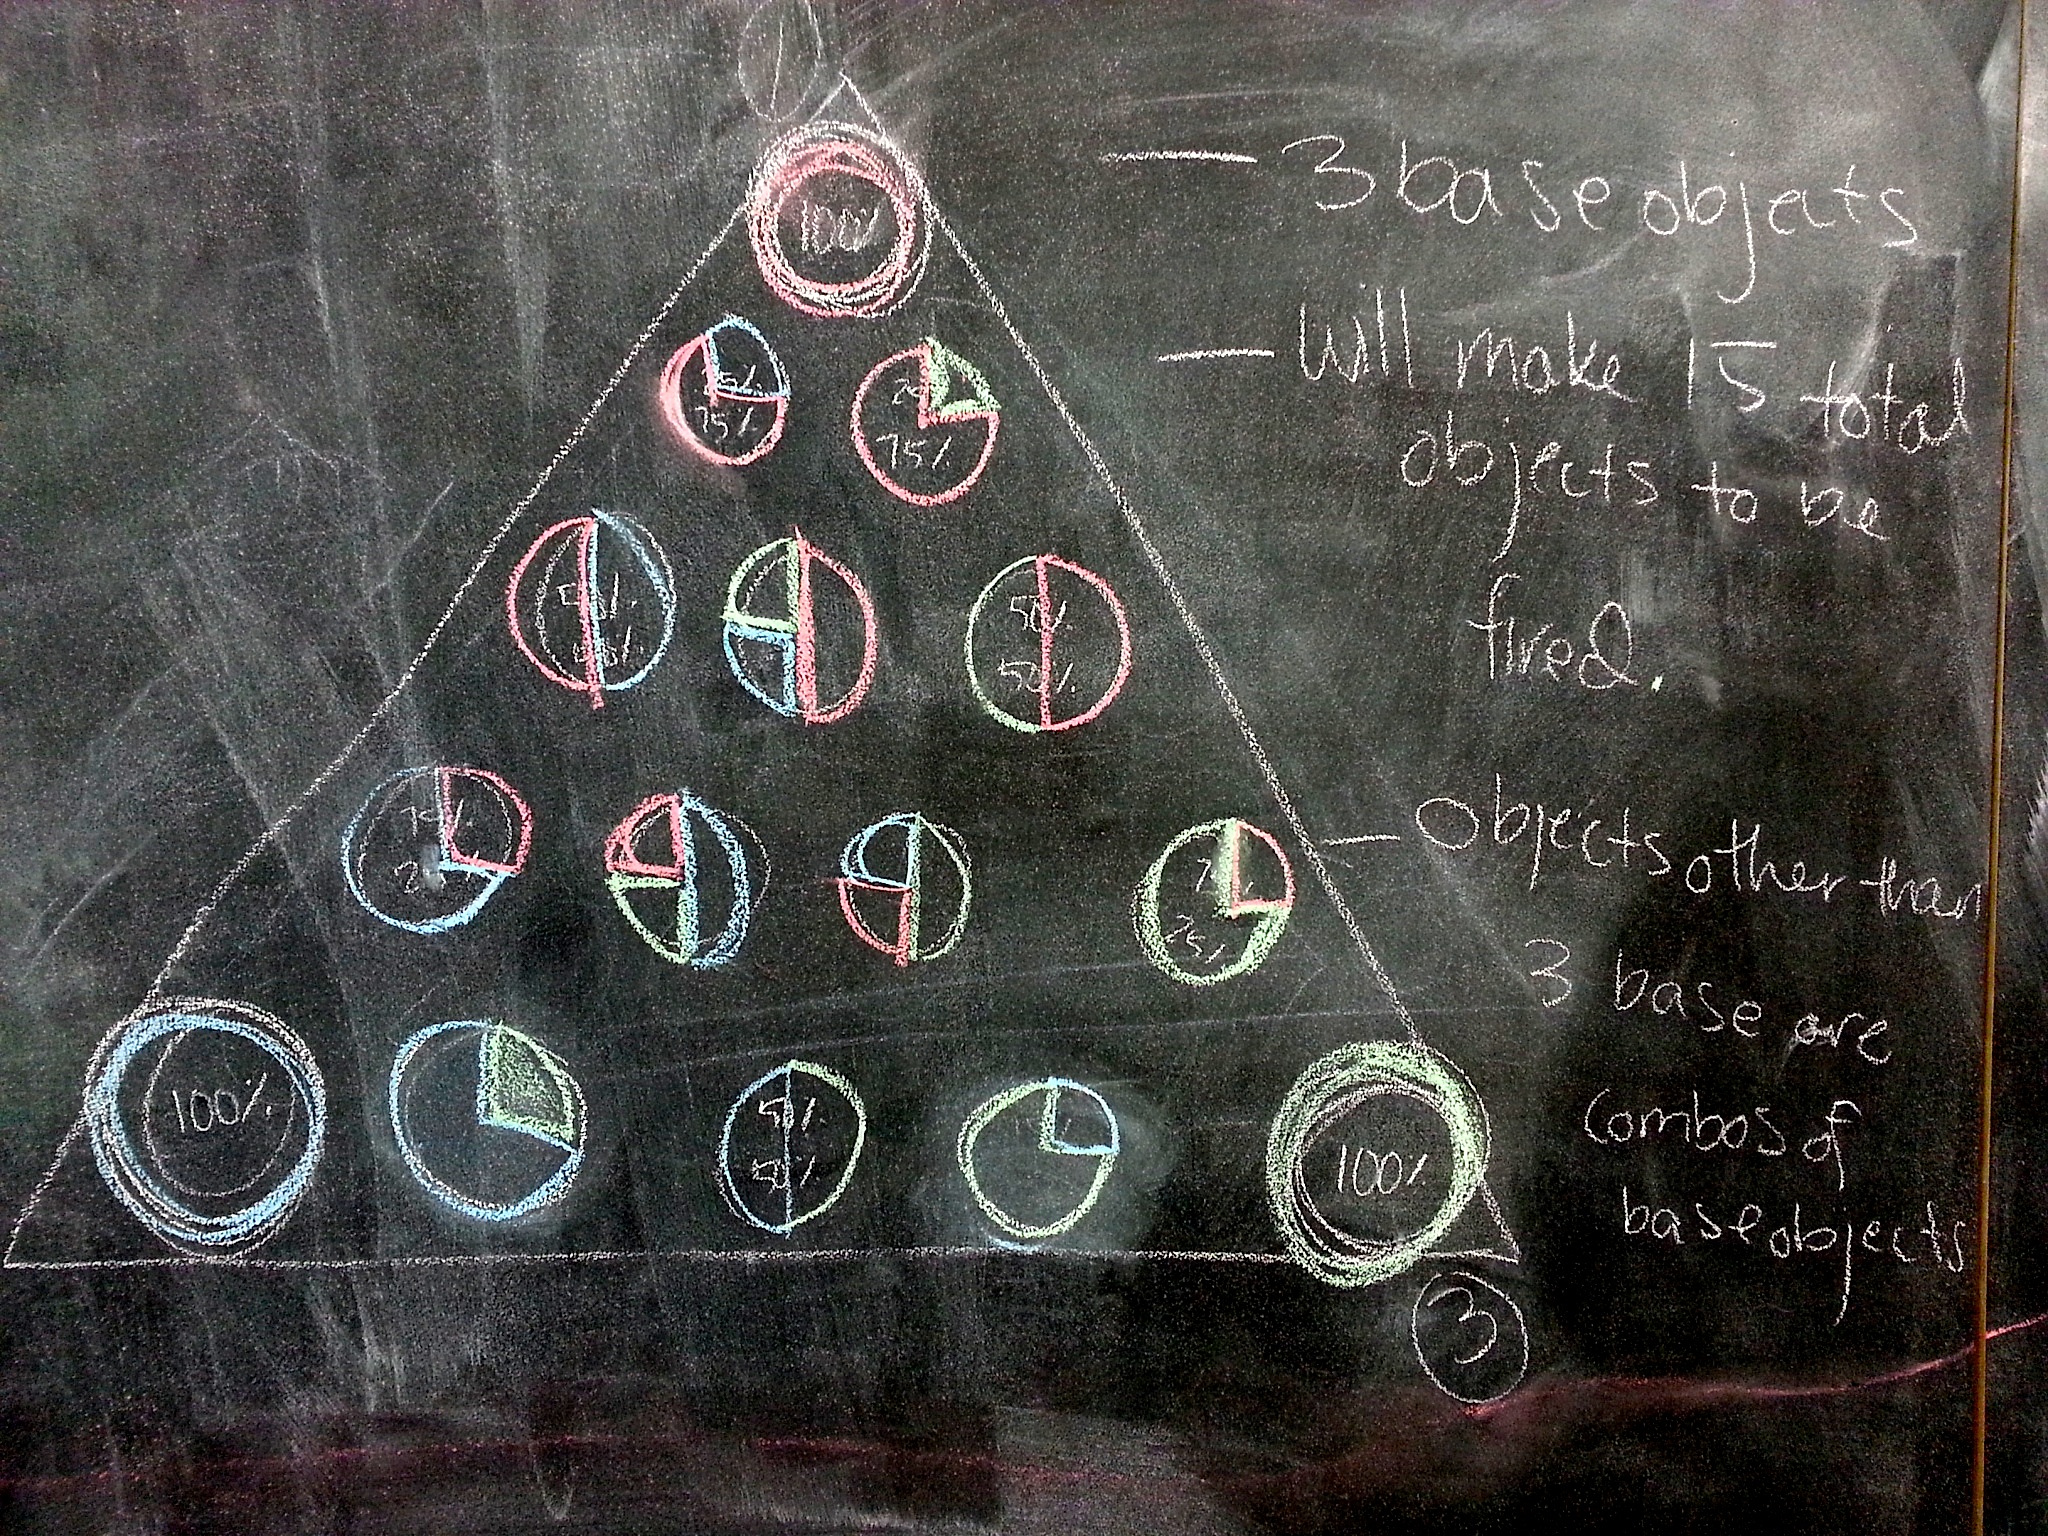 100%
— 3 base objects
— will make 15 total
objects to be
fired.
75%
75%
50%
50%
— Objects other than
3 base are
combos of
base objects
25%
100%
50%
50%
100%
3